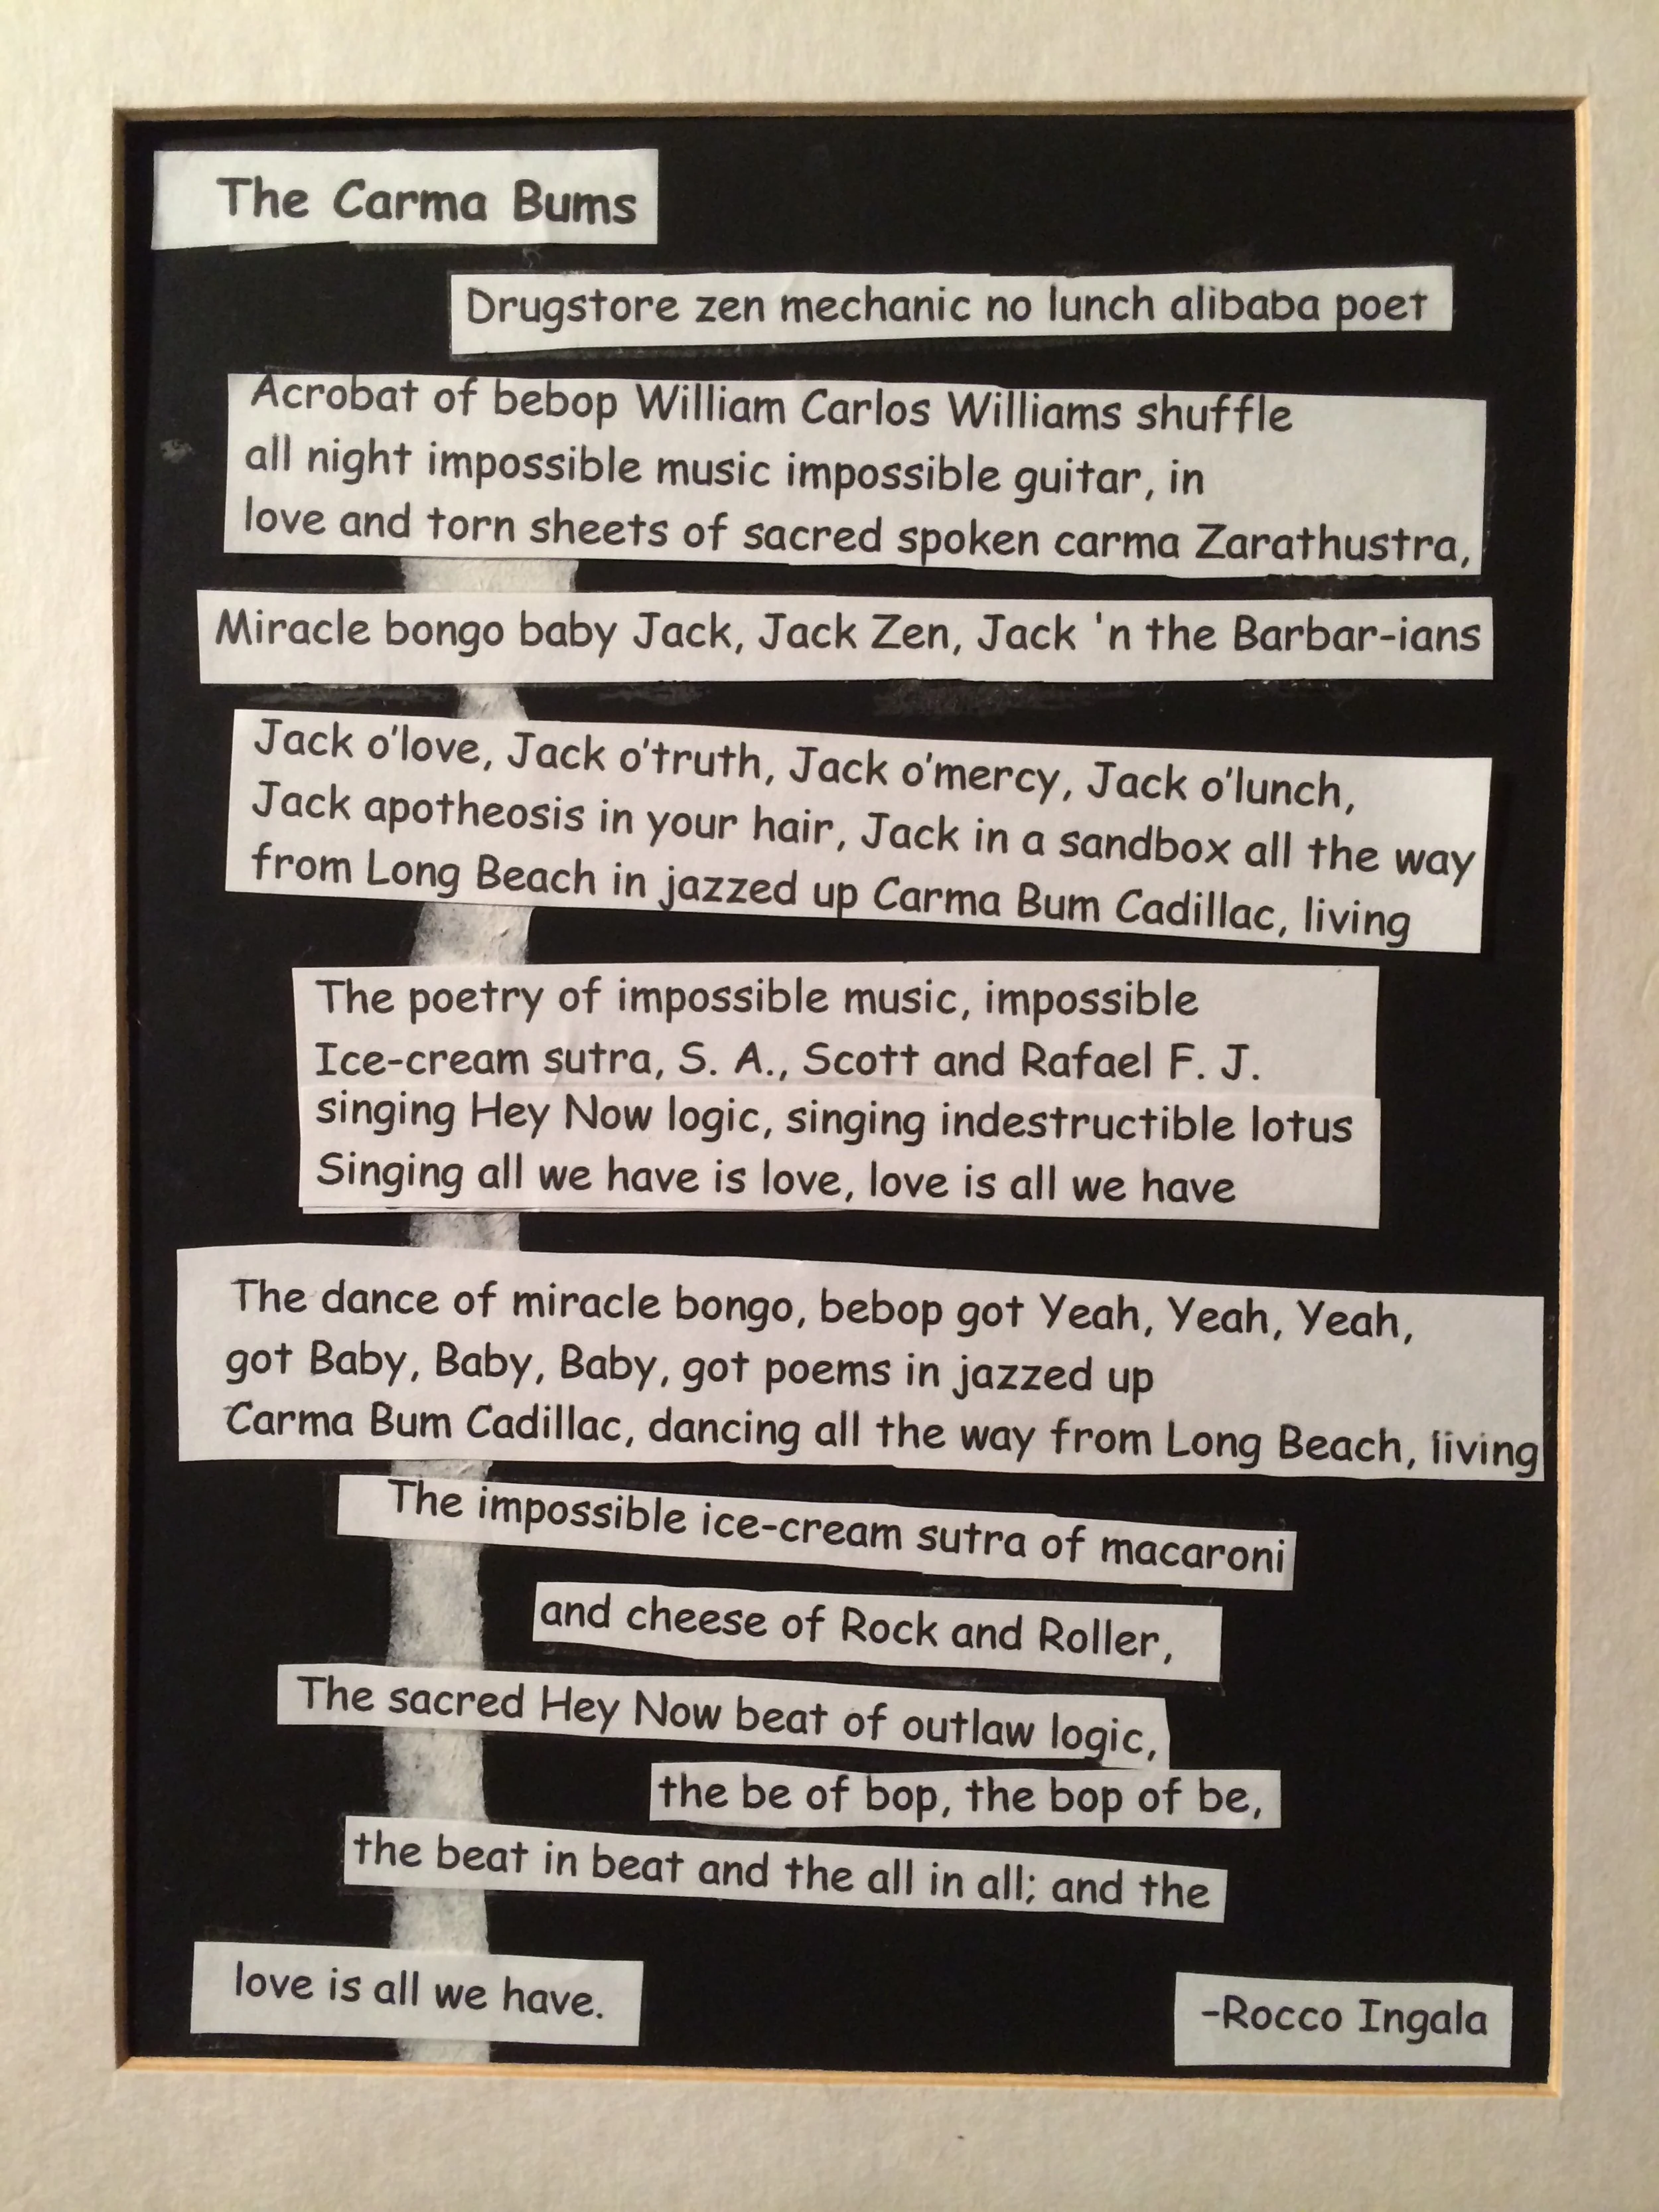 The Carma Bums
Drugstore zen mechanic no lunch alibaba poet
Acrobat of bebop William Carlos Williams shuffle
all night impossible music impossible guitar, in
love and torn sheets of sacred spoken carma Zarathustra,
Miracle bongo baby Jack, Jack Zen, Jack 'n the Barbar-ians
Jack o'love, Jack o'truth, Jack o'mercy, Jack o'lunch,
Jack apotheosis in your hair, Jack in a sandbox all the way
from Long Beach in jazzed up Carma Bum Cadillac, living
The poetry of impossible music, impossible
Ice-cream sutra, S. A., Scott and Rafael F. J.
singing Hey Now logic, singing indestructible lotus
Singing all we have is love, love is all we have
The dance of miracle bongo, bebop got Yeah, Yeah, Yeah,
got Baby, Baby, Baby, got poems in jazzed up
Carma Bum Cadillac, dancing all the way from Long Beach, living
The impossible ice-cream sutra of macaroni
and cheese of Rock and Roller,
The sacred Hey Now beat of outlaw logic,
the be of bop, the bop of be,
the beat in beat and the all in all; and the
love is all we have.
-Rocco Ingala